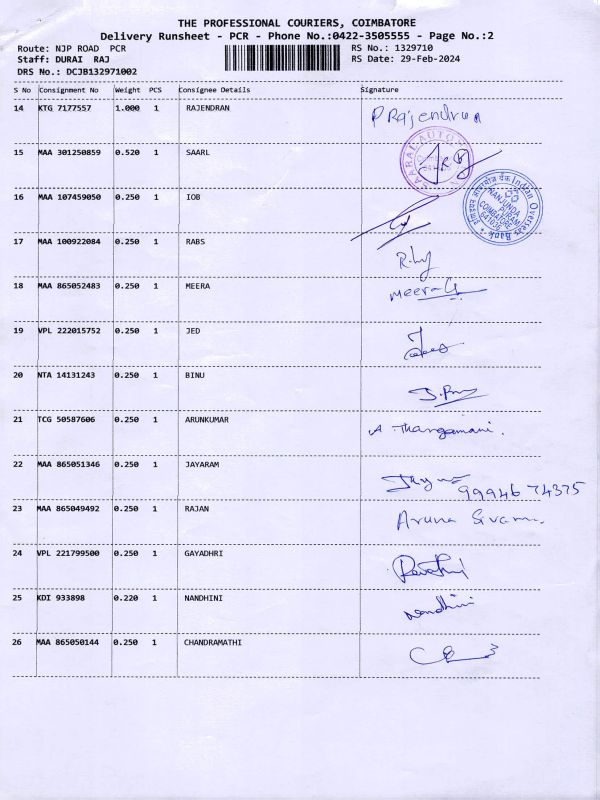 THE PROFESSIONAL COURIERS, COIMBATORE
Delivery Runsheet - PCR - Phone No.:0422-3505555 - Page No.:2
Route: NJP ROAD PCR
RS No.: 1329710
Staff: DURAI RAJ
RS Date: 29-Feb-2024
DRS No.: DCJB132971002
S No Consignment No Weight PCS Consignee Details Signature
14 KTG 7177557 1.000 1 RAJENDRAN P Rajendran
15 MAA 301250859 0.520 1 SAARL
SAARAL AUTO
16 MAA 107459050 0.250 1 IOB
इण्डियन ओवरसीज़ बैंक Indian Overseas Bank
NANJUNDA
PURAM
COIMBATORE
641036
17 MAA 100922084 0.250 1 RABS
18 MAA 865052483 0.250 1 MEERA Meera
19 VPL 222015752 0.250 1 JED
20 NTA 14131243 0.250 1 BINU
21 TCG 50587606 0.250 1 ARUNKUMAR A. Thangamani.
22 MAA 865051346 0.250 1 JAYARAM
99946 74375
23 MAA 865049492 0.250 1 RAJAN Aruna
24 VPL 221799500 0.250 1 GAYADHRI Revathi
25 KDI 933898 0.220 1 NANDHINI Nandhini
26 MAA 865050144 0.250 1 CHANDRAMATHI